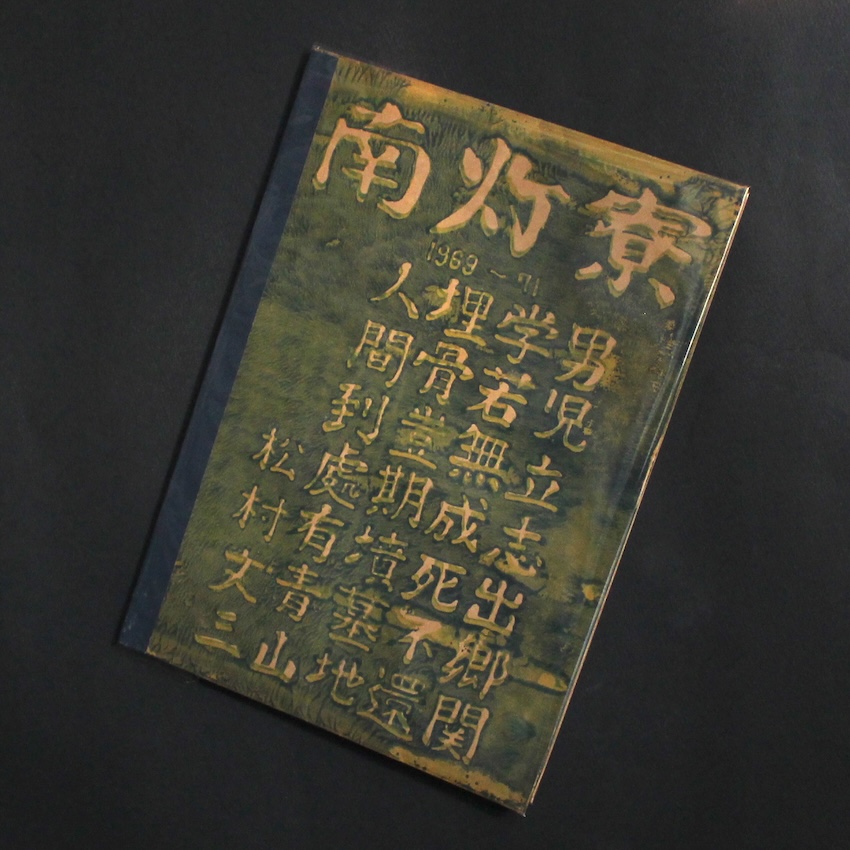 南灯寮
1969～71
男児立志出郷関
学若無成死不還
埋骨豈期墳墓地
人間到處有青山
松村文三